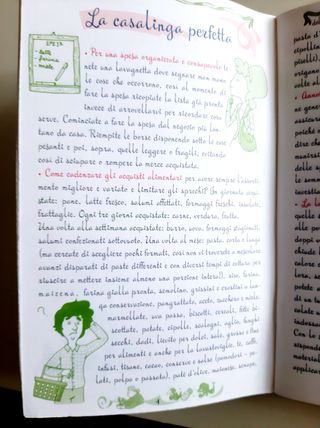 La casalinga perfetta
SPESA
latte
farina
• Per una spesa organizzata e consapevole te-
nete una lavagnetta dove segnar man mano
le cose che occorrono, così al momento di
fare la spesa ricopiate la lista già pronta
invece di arrovellarvi per ricordare cosa
serve. Cominciate a fare la spesa dal negozio più lon-
tano da casa. Riempite le borse disponendo sotto le cose
pesanti e poi, sopra, quelle leggere o fragili, evitando
così di sciupare o rompere la merce acquistata.
• Come cadenzare gli acquisti alimentari per avere sempre l'assorti-
mento migliore e variato e limitare gli sprechi? In giornata acqui-
state: pane, latte fresco, salumi affettati, formaggi freschi, insalate,
frattaglie. Ogni tre giorni acquistate: carne, verdura, frutta.
Una volta alla settimana acquistate: burro, uova, formaggi stagionati,
salumi confezionati sottovuoto. Una volta al mese: pasta, corta e lunga
(ma cercate di scegliere pochi formati, così non vi troverete a mescolare
avanzi disparati di paste differenti e con diversi tempi di cottura per
riuscire a mettere insieme almeno una porzione intera), riso, farina,
maizena, farina gialla pronta, semolino, grissini e crostini a lun-
ga conservazione, pangrattato, aceto, zucchero e miele,
marmellate, uva passa, biscotti, cereali, fette bi-
scottate, patate, cipolle, scalogni, aglio, funghi
secchi, dadi, lievito per dolci, sale, grosso e fino
per alimenti e anche per la lavastoviglie, tè, caffè,
infusi, tisane, cacao, conserve e salse (pomodori - pe-
lati, polpa o passata), paté d'olive, maionese, senape,
4